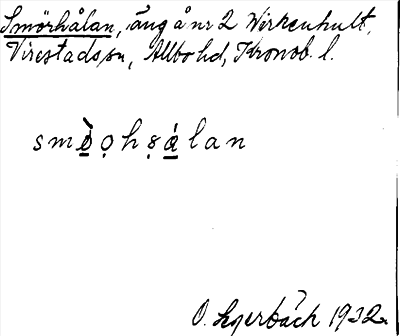 Smörhålan, äng å nr 2 Wirkenhult,
Virestads sn, Allbo hd, Kronob. l.
smö̀ọhṣálan
O. Lgerbäck 1932.